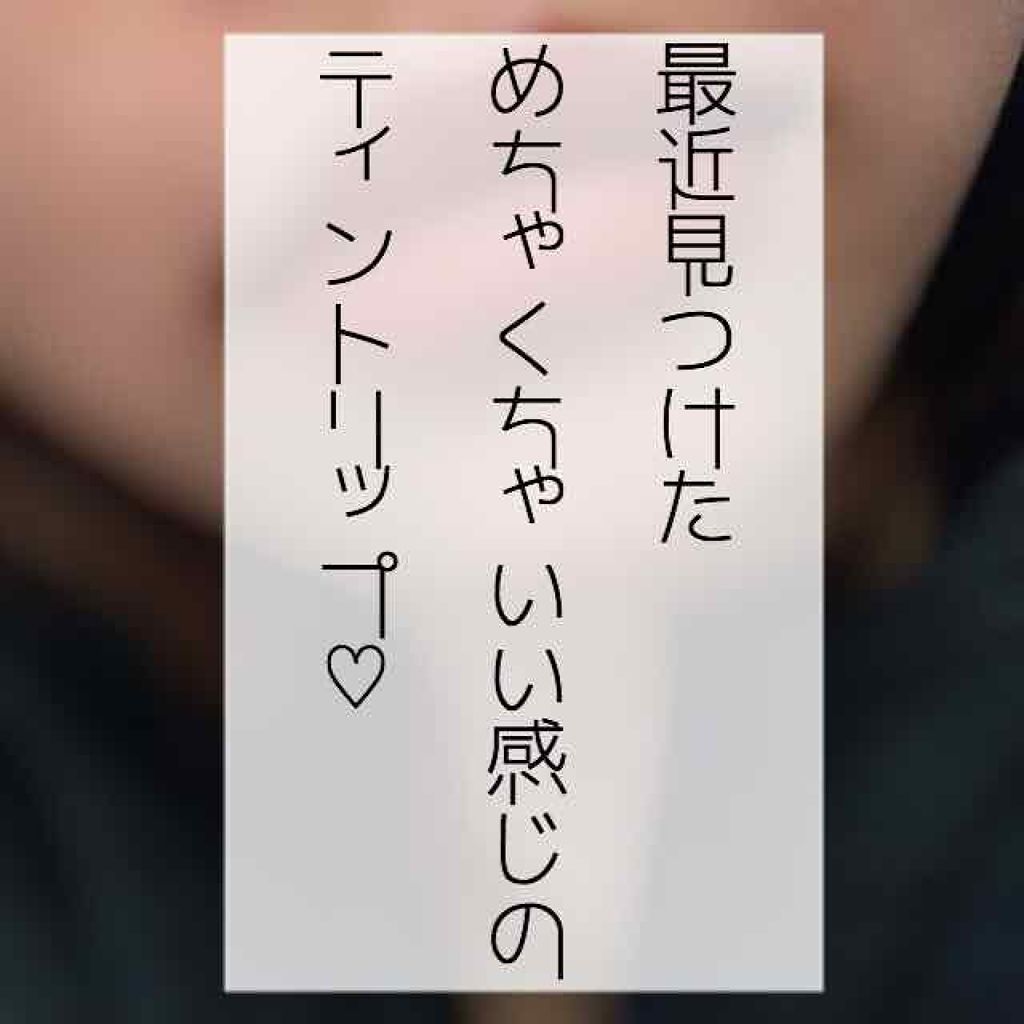 最近見つけた
めちゃくちゃいい感じの
ティントリップ♡